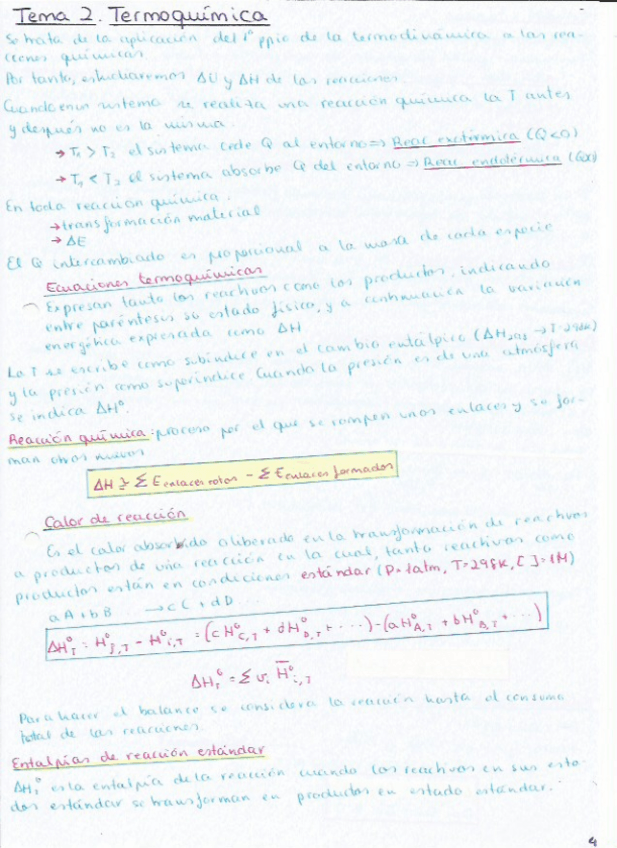 Tema 2. Termoquímica
Se trata de la aplicación del 1º ppio de la termodinámica a las rea-
cciones químicas
Por tanto, estudiaremos ΔU y ΔH de las reacciones.
Cuando en un sistema se realiza una reacción química la T antes
y después no es la misma.
→ T₁ > T₂ el sistema cede Q al entorno ⇒ Reac exotérmica (Q<0)
→ T₁ < T₂ el sistema absorbe Q del entorno ⇒ Reac endotérmica (Q>0)
En toda reacción química.
→ transformación material
→ ΔE
El Q intercambiado es proporcional a la masa de cada especie
Ecuaciones termoquímicas
Expresan tanto los reactivos como los productos, indicando
entre paréntesis su estado físico, y a continuación la variación
energética expresada como ΔH
La T se escribe como subíndice en el cambio entálpico (ΔH₂₉₈ → T=298K)
y la presión como superíndice Cuando la presión es de una atmósfera
se indica ΔHº.
Reacción química: proceso por el que se rompen unos enlaces y se for-
man otros nuevos
ΔH = Σ E enlaces rotos - Σ E enlaces formados
Calor de reacción
Es el calor absorbido o liberado en la transformación de reactivos
a productos de una reacción en la cual, tanto reactivos como
productos están en condiciones estándar (P=1atm, T=298K, [ ]=1M)
aA + bB → cC + dD ...
ΔHºT = Hºf,T - Hºi,T = (c HºC,T + d HºD,T + ...) - (a HºA,T + b HºB,T + ...)
ΔHºT = Σ υi H̄ºi,T
Para hacer el balance se considera la reacción hasta el consumo
total de las reacciones.
Entalpías de reacción estándar
ΔHºT es la entalpía de la reacción cuando los reactivos en sus esta-
dos estándar se transforman en productos en estado estándar.
4